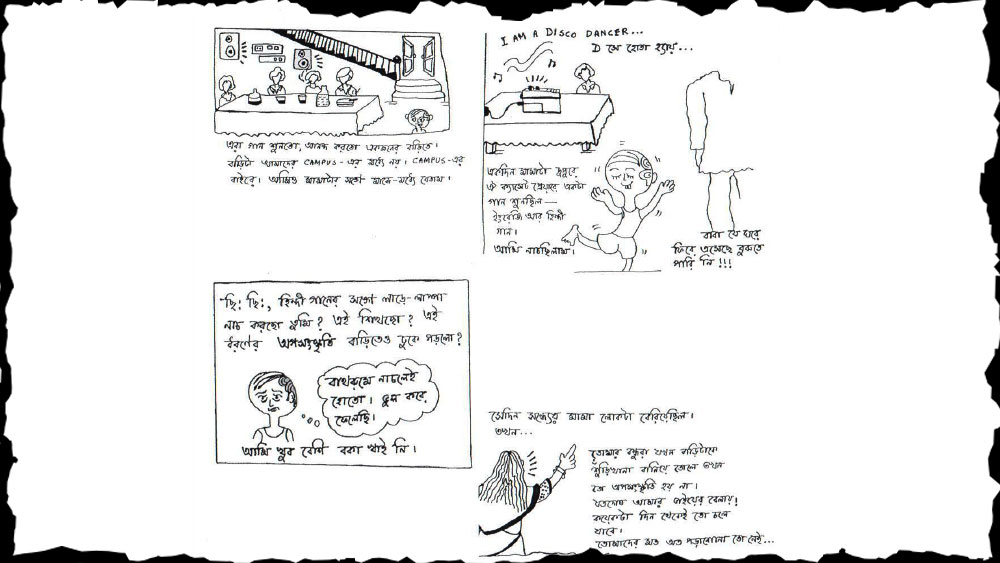 এরা গান শুনতো, আনন্দ করতো একজনের বাড়িতে।
বাড়িটা আমাদের CAMPUS-এর মধ্যে নয়। CAMPUS-এর
বাইরে। আমিও মামাটার সঙ্গে মাঝে-মধ্যে যেতাম।
I AM A DISCO DANCER...
D সে হোতা হ্যায়...
একদিন মামাটা দুপুরে
ঐ ক্যাসেট প্লেয়ারে একটা
গান শুনছিল—
ইংরেজি আর হিন্দী
গান।
আমি নাচছিলাম।
বাবা যে ঘরে
ফিরে এসেছে বুঝতে
পারি নি!!!
ছি: ছি:, হিন্দী গানের সঙ্গে লারে-লাপ্পা
নাচ করছো তুমি? এই শিখছো? এই
ধরণের অপসংস্কৃতি বাড়িতেও ঢুকে পড়লো?
বাথরুমে নাচলেই
হোতো। ভুল করে
ফেলেছি।
আমি খুব বেশি বকা খাই নি।
সেদিন সন্ধ্যেয় মামা লোকটা বেরিয়েছিল।
তখন...
তোমার বন্ধুরা যখন বাড়িটাকে
শুঁড়িখানা বানিয়ে তোলে তখন
তো অপসংস্কৃতি হয় না।
যতদোষ আমার ভাইয়ের বেলায়!
কয়েকটা দিন থেকেই তো চলে
যাবে।
তোমাদের মত অত পড়াশোনা তো নেই...